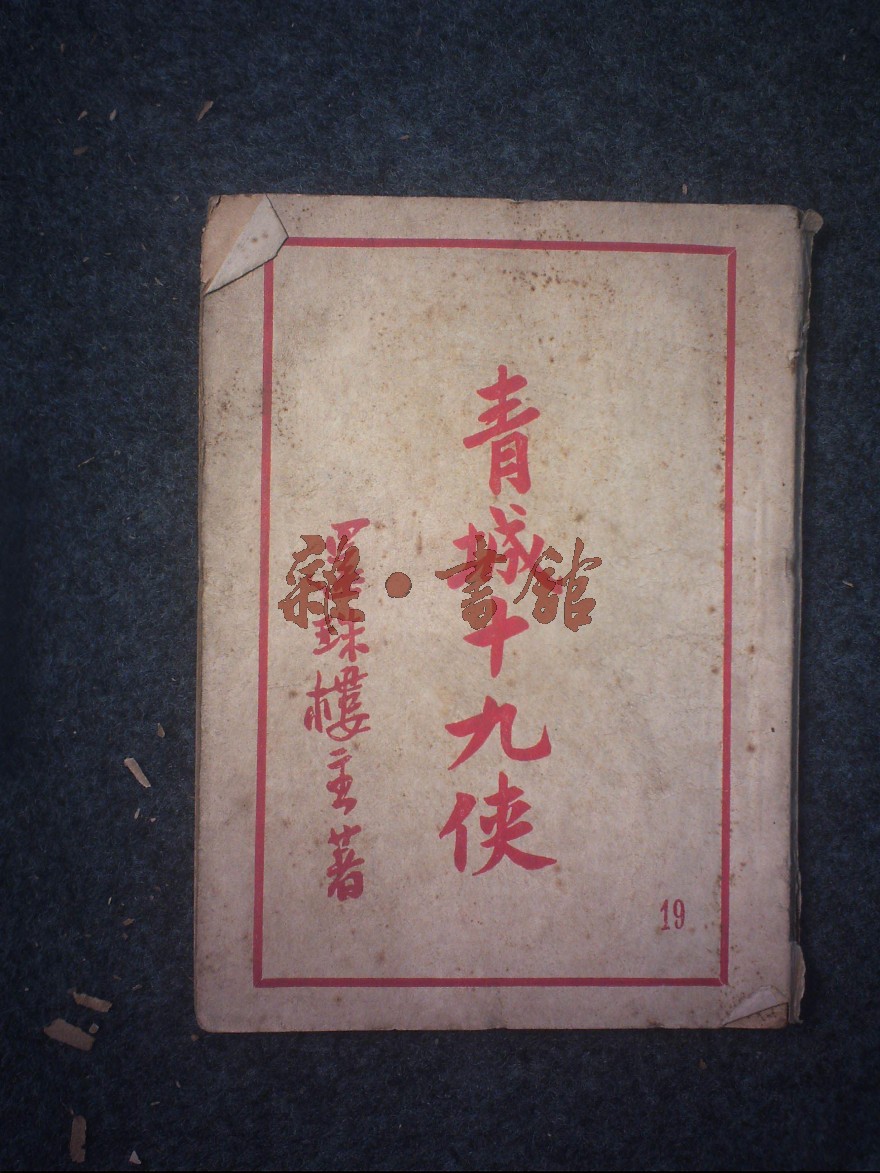 青城十九俠
還珠樓主著
19
雜·書館